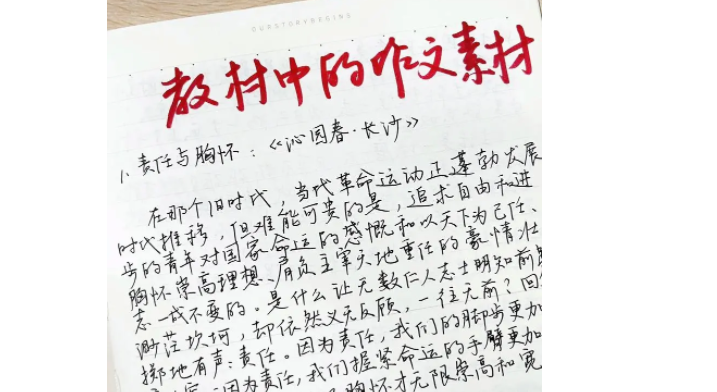 OURSTORYBEGINS
教材中的作文素材
1.责任与胸怀:《沁园春·长沙》
在那个旧时代,当代革命运动正蓬勃发展
时代推移,但难能可贵的是,追求自由和进
步的青年对国家命运的感慨和以天下为己任、
胸怀崇高理想、肩负主宰天地重任的豪情壮
志一成不变的。是什么让无数仁人志士明知前
渺茫坎坷,却依然义无反顾,一往无前?回
掷地有声:责任。因为责任,我们的脚步更加
因为责任,我们握紧命运的手臂更加
胸怀才无限崇高和宽